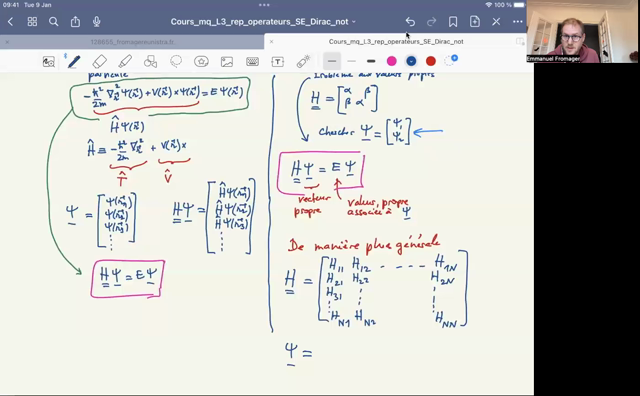 09:41 Tue 9 Jan
Cours_mq_L3_rep_operateurs_SE_Dirac_not
100 %
Cours_mq_L3_rep_operateurs_SE_Dirac_not
Emmanuel Fromager
particule
-ħ²/2m ∇²_r⃗ Ψ(r⃗) + V(r⃗) × Ψ(r⃗) = E Ψ(r⃗)
Ĥ Ψ(r⃗)
Ĥ ≡ -ħ²/2m ∇²_r⃗ + V(r⃗) ×
T̂ V̂
Ψ = [Ψ(r⃗₁) Ψ(r⃗₂) Ψ(r⃗₃) ⋮]
H Ψ = [ĤΨ(r⃗₁) ĤΨ(r⃗₂) ĤΨ(r⃗₃) ⋮]
H Ψ = E Ψ
Problème aux valeurs propres
H = [α β β α]
Chercher Ψ = [Ψ₁ Ψ₂]
H Ψ = E Ψ
vecteur propre
valeur propre associée à Ψ
De manière plus générale
H = [H₁₁ H₁₂ - - - - H₁N
H₂₁ H₂₂ H₂N
H₃₁
⋮ ⋮ ⋮
H_N1 H_N2 H_NN]
Ψ =